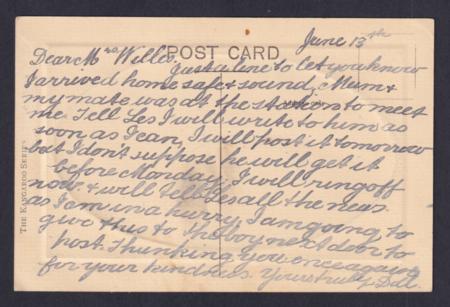 June 13th
POST CARD
Dear Mrs Wills.
Just a line to let you know
I arrived home safe & sound, Mum &
my mate was at the station to meet
me. Tell Les I will write to him as
soon as I can, I will post it tomorrow
but I don't suppose he will get it
before Monday, I will ring off
now. & will tell Les all the news.
as I am in a hurry, I am going to
give this to the boy next door to
post. Thanking you once again
for your kindness. Yours truly
THE KANGAROO SERIES